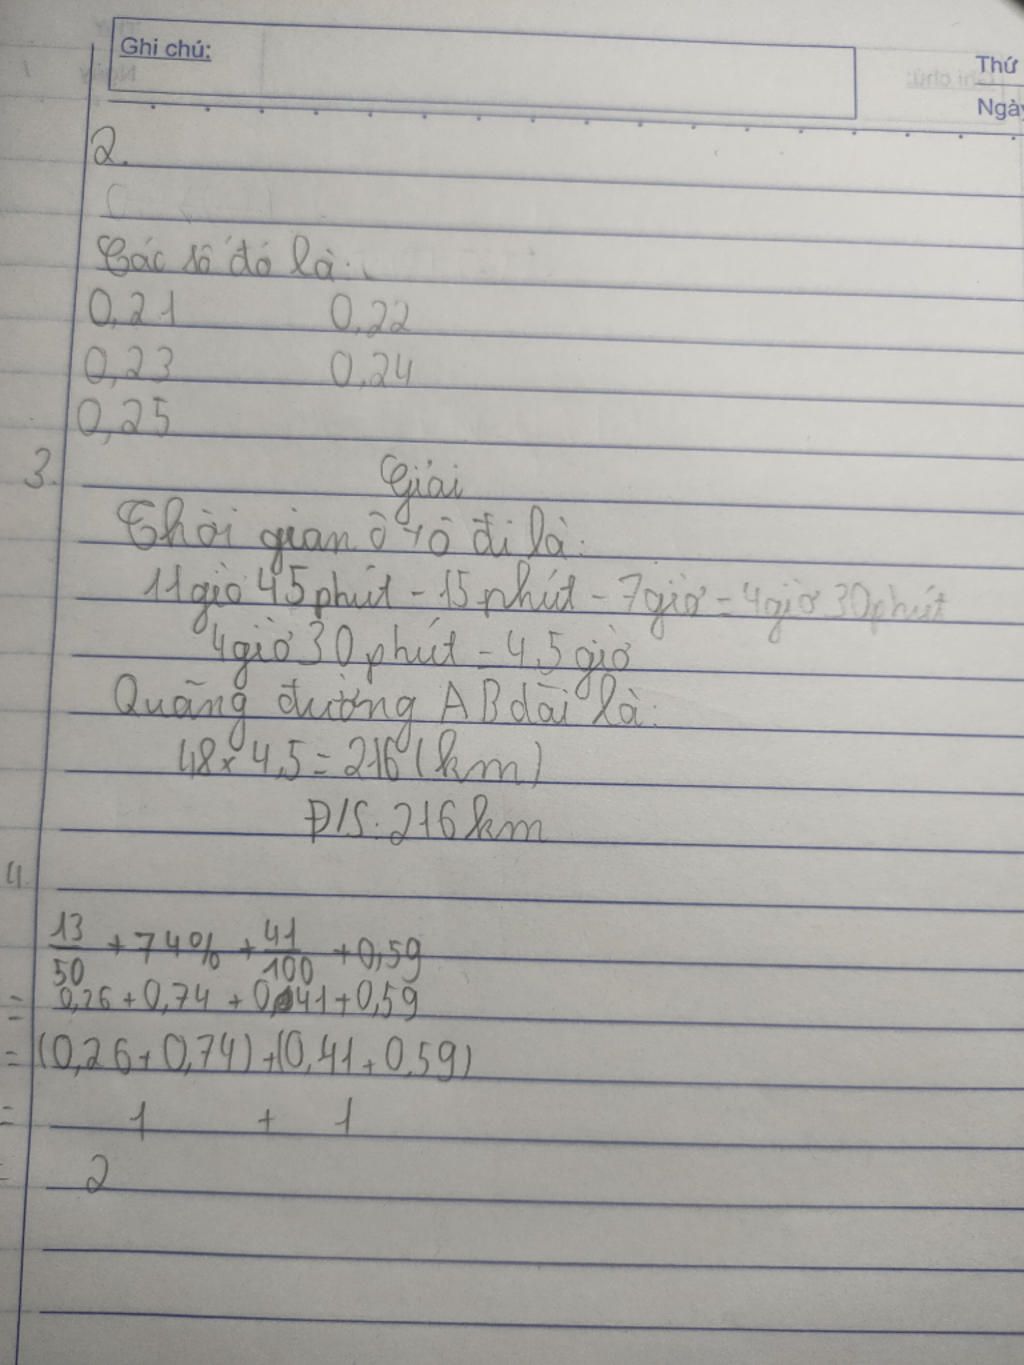 Ghi chú:
Thứ
Ngày
2.
Các số đó là:
0,21 0,22
0,23 0,24
0,25
3. Giải
Thời gian ô tô đi là:
11 giờ 45 phút - 15 phút - 7 giờ = 4 giờ 30 phút
4 giờ 30 phút = 4,5 giờ
Quãng đường AB dài là:
48 x 4,5 = 216 (km)
Đ/S: 216 km
4
13/50 + 74% + 41/100 + 0,59
= 0,26 + 0,74 + 0,41 + 0,59
= (0,26 + 0,74) + (0,41 + 0,59)
= 1 + 1
= 2